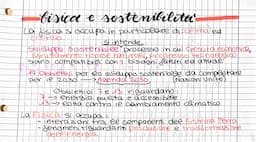 fisica e sostenibilità
La fisica si occupa in particolare di: CLIMA ed
ENERGIA
si intende
Sviluppo sostenibile processo in cui crescita economica,
sono compatibili con i bisogni futuri ed attuali
Obiettivi per lo sviluppo sostenibile da completare
per il 2030 Agenda 2030 (Nazioni Unite)
Obiettivi 7 e 13 riguardano:
7 energia pulita e accessibile
13 lotta contro il cambiamento climatico
La FISICA si occupa:
- interazioni tra le componenti del Sistema Terra
- fenomeni riguardanti produzione e trasformazione
dell'energia